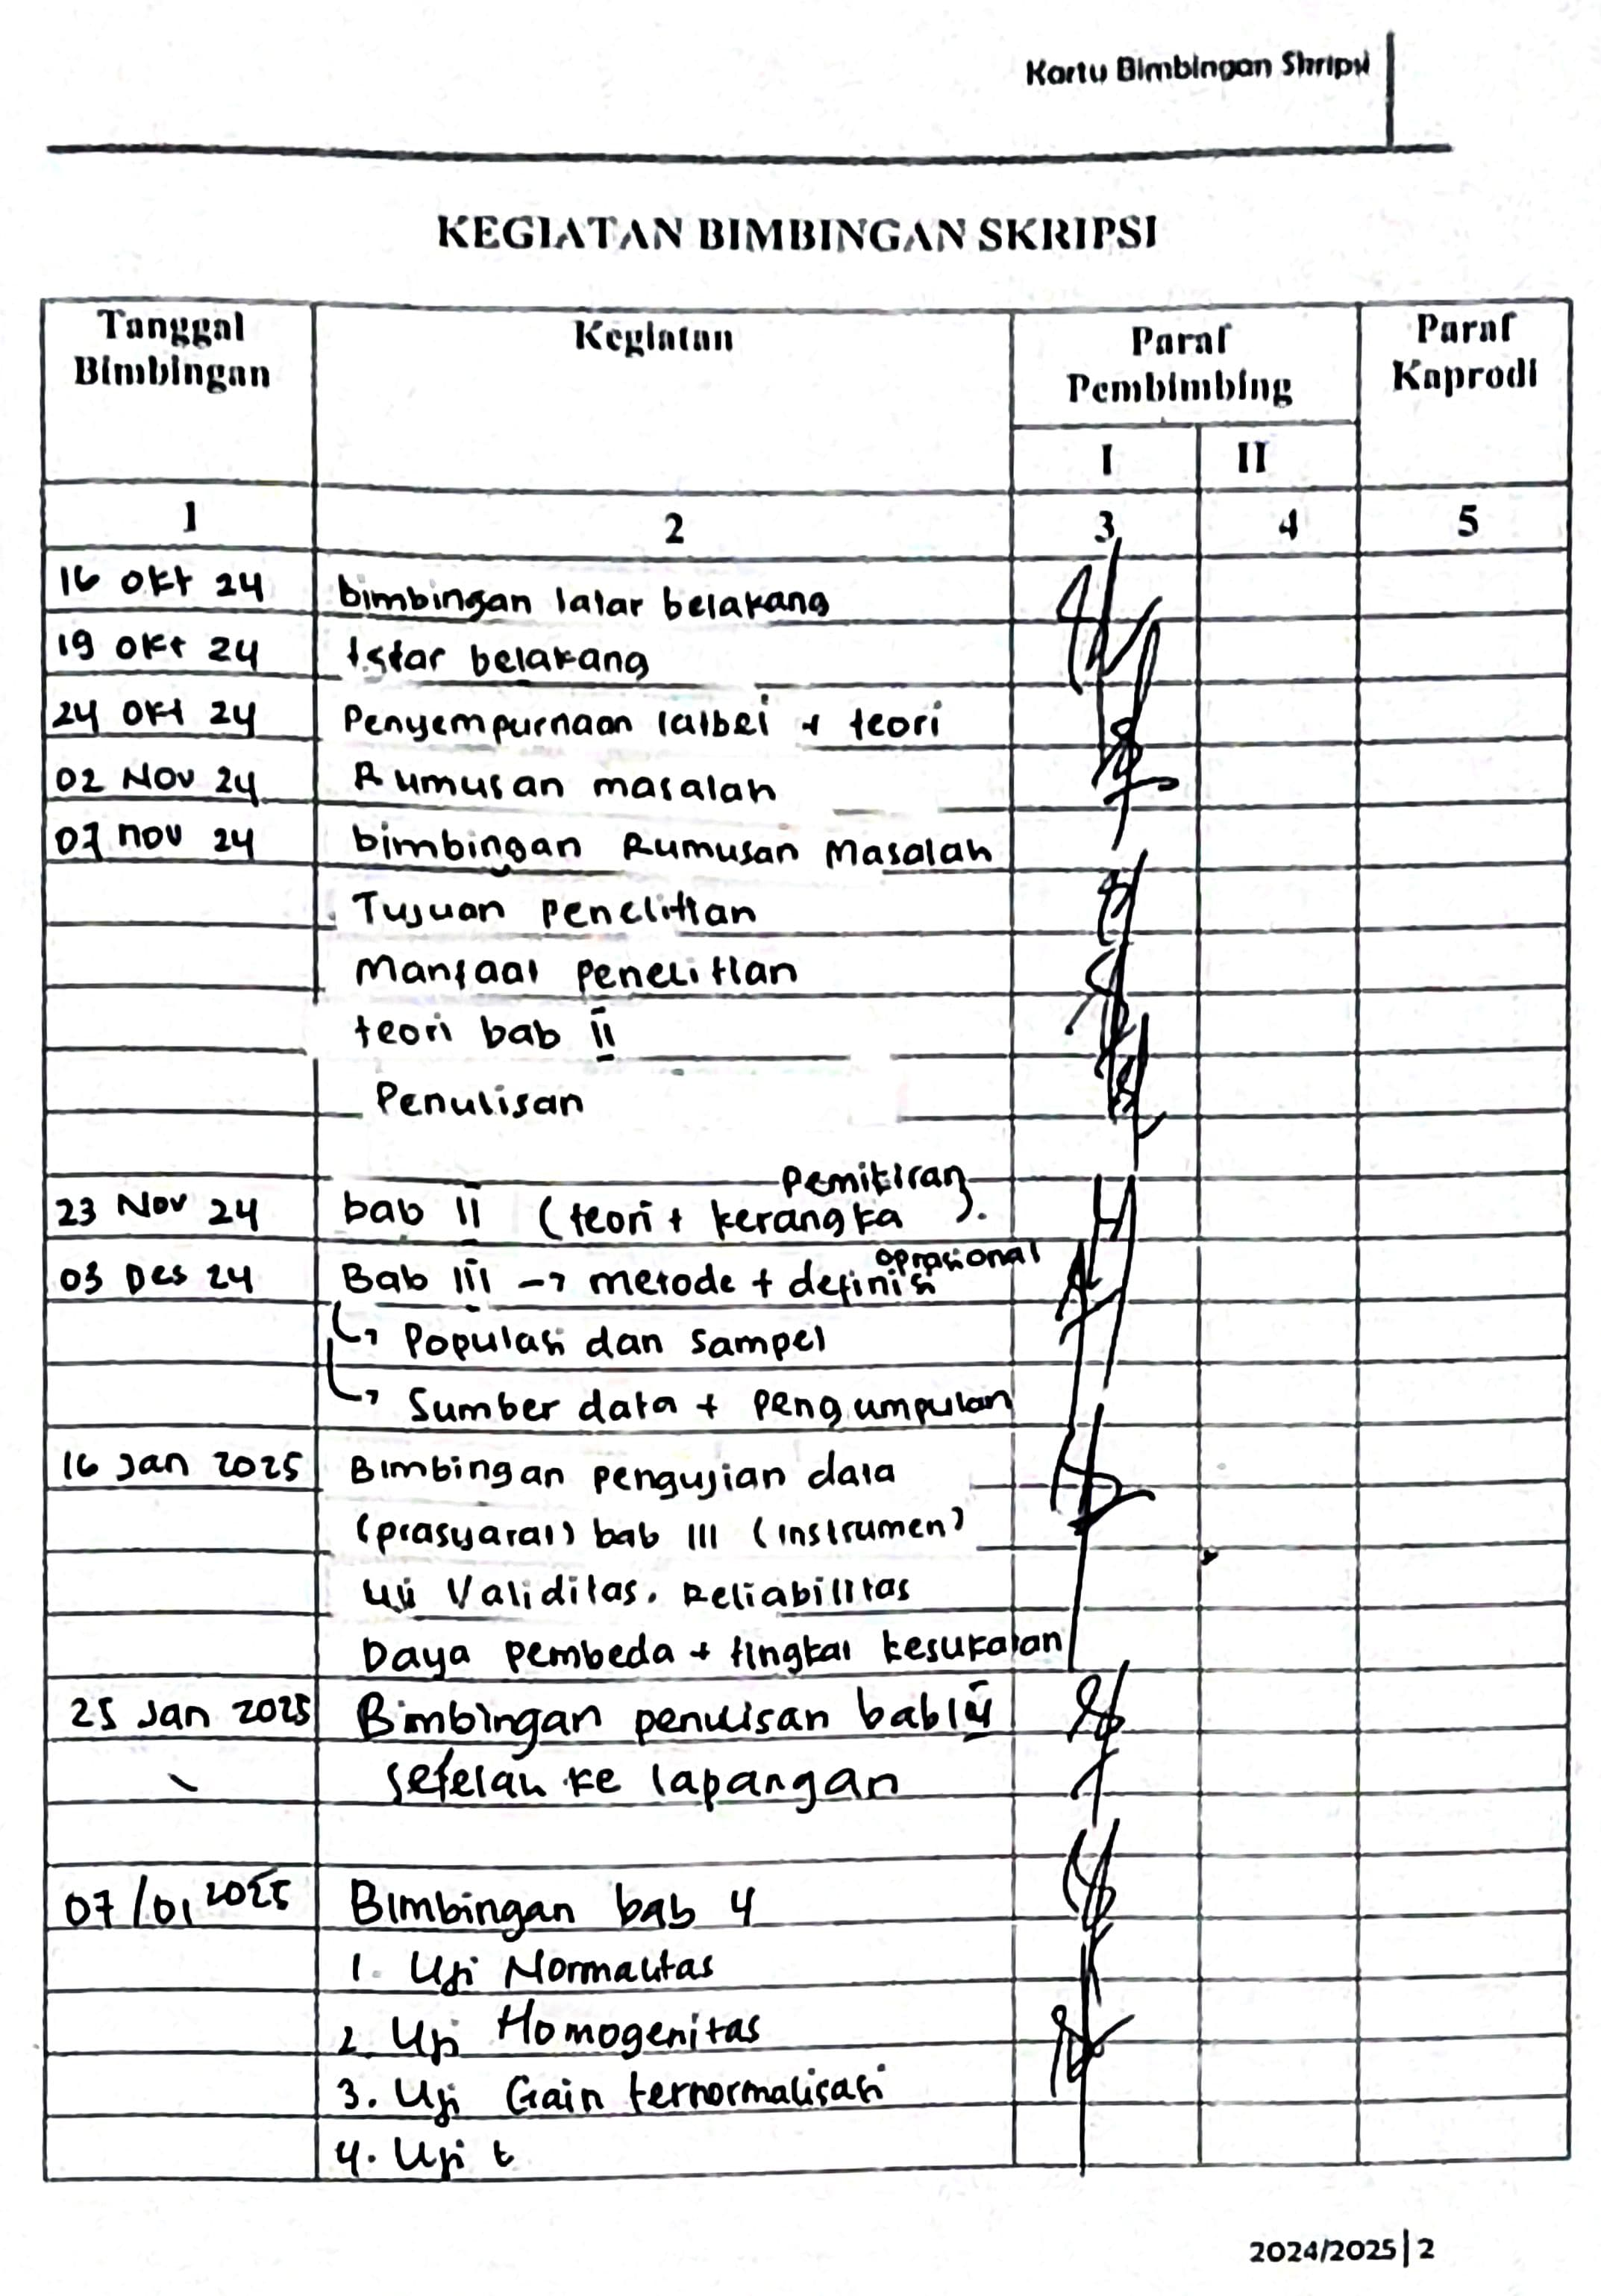 Kartu Bimbingan Skripsi
KEGIATAN BIMBINGAN SKRIPSI
Tanggal Bimbingan
Kegiatan
Paraf Pembimbing
Paraf Kaprodi
I II
1 2 3 4 5
16 Okt 24 bimbingan latar belakang
19 Okt 24 latar belakang
24 Okt 24 Penyempurnaan latbel + teori
02 Nov 24 Rumusan masalah
07 nov 24 bimbingan Rumusan Masalah
Tujuan penelitian
Manfaat penelitian
teori bab II
Penulisan
pemikiran
23 Nov 24 bab II (teori + kerangka ).
oprasional
03 Des 24 Bab III → metode + definisi
↳ Populasi dan sampel
↳ Sumber data + pengumpulan
16 Jan 2025 Bimbingan pengujian data
(prasyarat) bab III (instrumen)
Uji Validitas. Reliabilitas
Daya pembeda + tingkat kesukaran
25 Jan 2025 Bimbingan penulisan bab
setelah ke lapangan
07/01 2025 Bimbingan bab 4
1. Uji Normalitas
2. Uji Homogenitas
3. Uji Gain ternormalisasi
4. Uji t
2024/2025|2